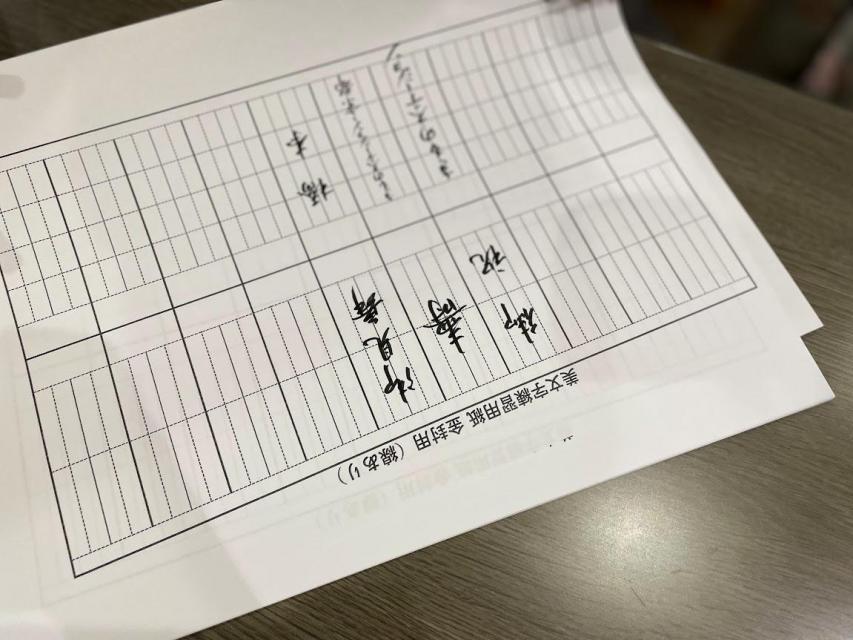 美文字練習用紙 金封用（線あり）
御見舞
寿
御祝
橋本